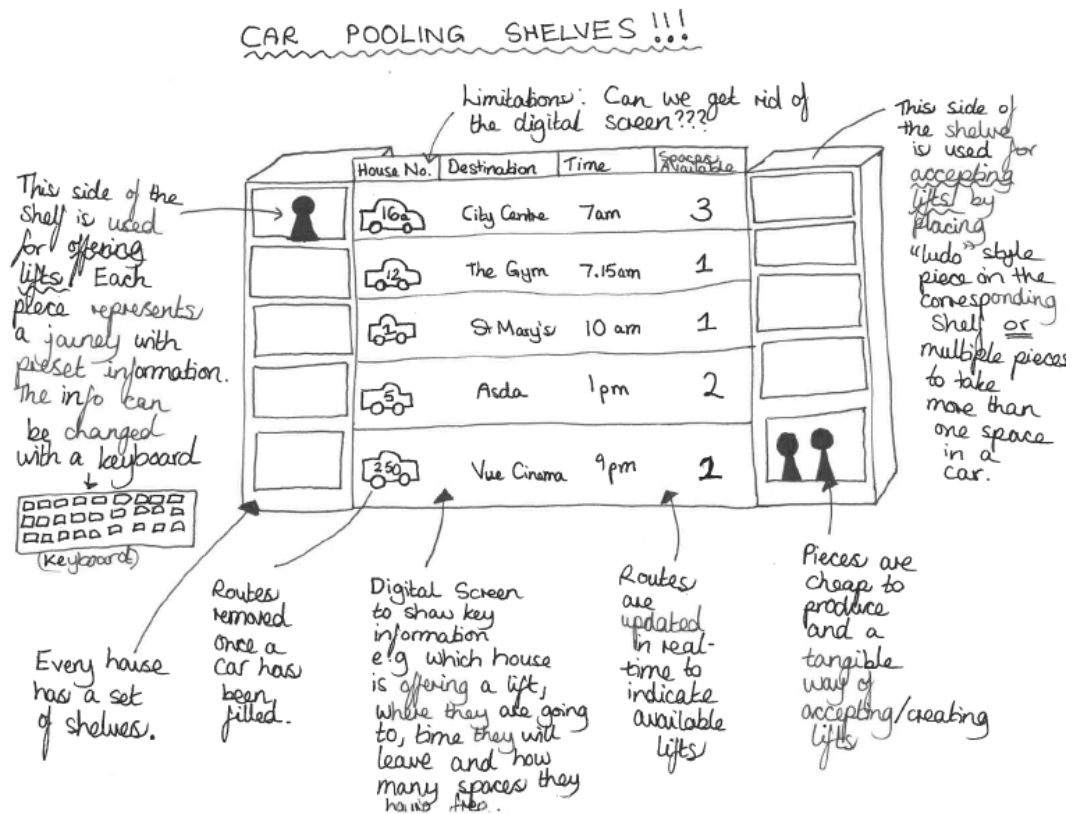 CAR POOLING SHELVES!!!
Limitations: Can we get rid of
the digital screen???
This side of the
shelf is used
for offering
lifts! Each
piece represents
a journey with
preset information.
The info can
be changed
with a keyboard
(Keyboard)
House No. Destination Time Spaces Available
16a City Centre 7am 3
12 The Gym 7.15am 1
1 St Mary's 10 am 1
5 Asda 1pm 2
250 Vue Cinema 9pm 1
This side of
the shelve
is used for
accepting
lifts! by
placing
"ludo" style
piece on the
corresponding
shelf or
multiple pieces
to take
more than
one space
in a
car.
Every house
has a set
of shelves.
Routes
removed
once a
car has
been
filled.
Digital Screen
to show key
information
e.g which house
is offering a lift,
where they are going
to, time they will
leave and how
many spaces they
have free.
Routes
are
updated
in real-
time to
indicate
available
lifts
Pieces are
cheap to
produce
and a
tangible
way of
accepting/creating
lifts